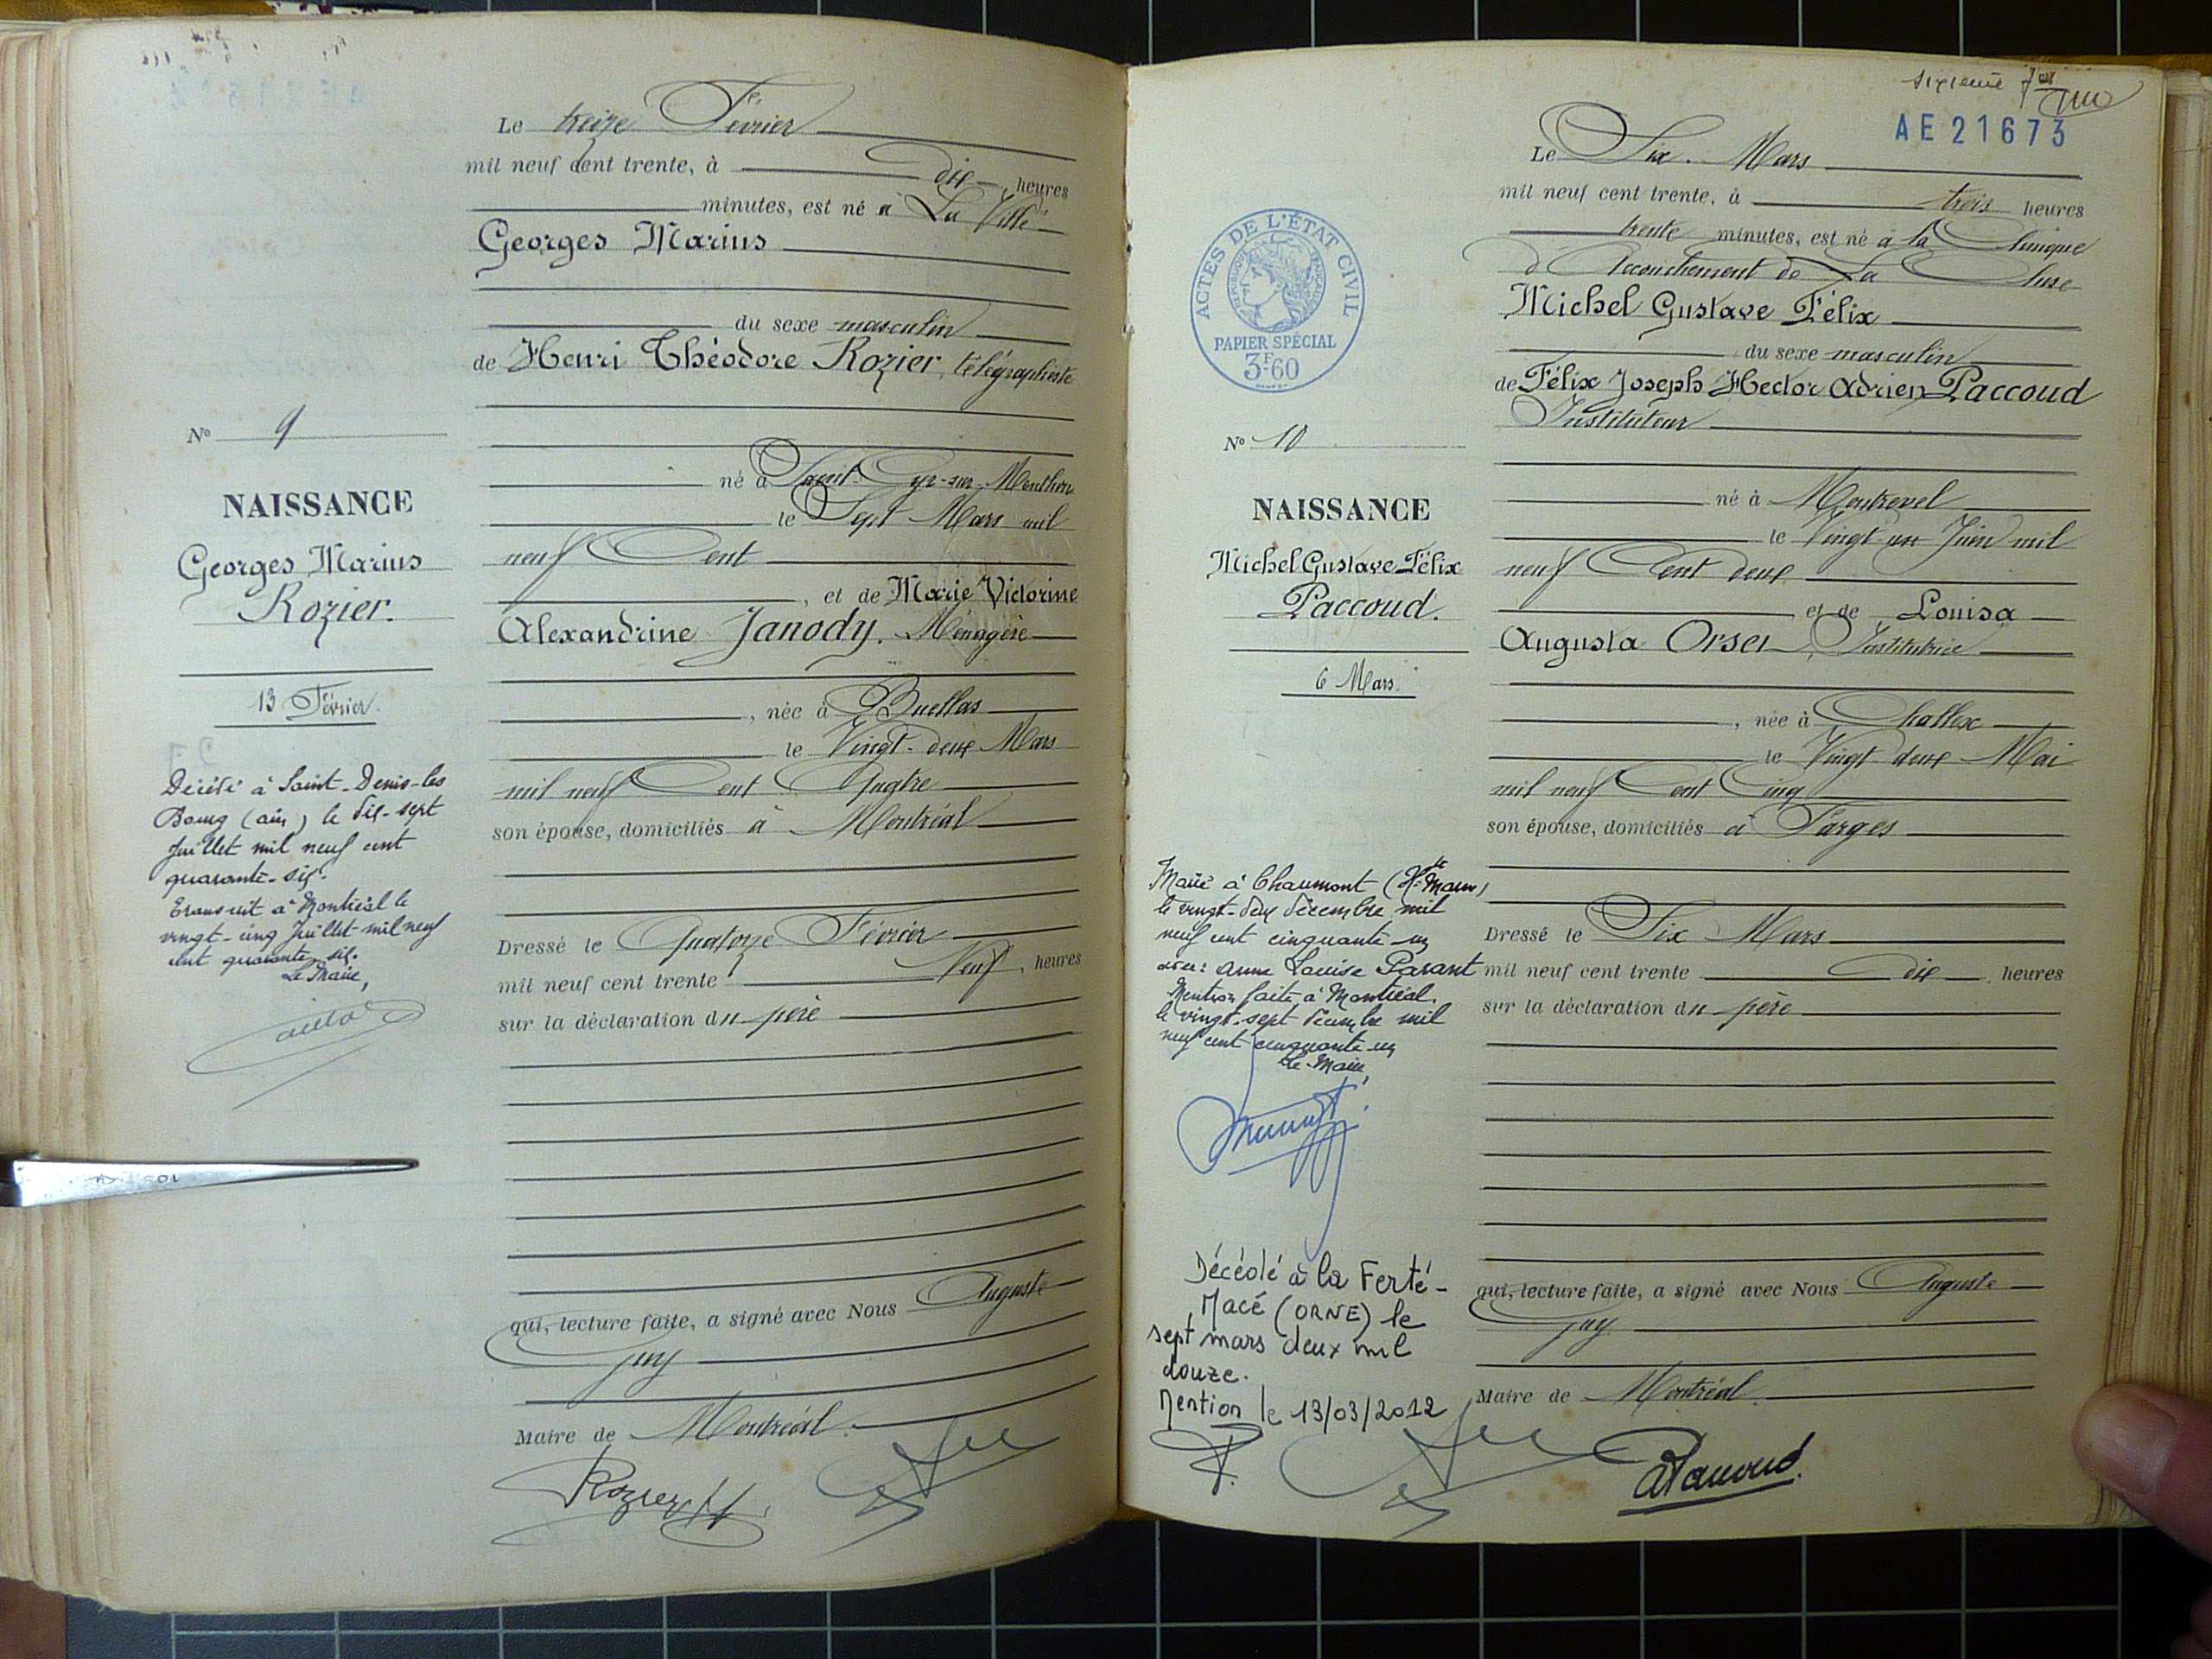 Le treize Février
mil neuf cent trente, à dix heures
minutes, est né à La Ville
Georges Marius
du sexe masculin
de Henri Théodore Rozier, télégraphiste
né à Saint-Cyr-sur-Menthon
le Sept Mars mil
neuf Cent
, et de Marie Victorine
Alexandrine Janody, Ménagère
, née à Buellas
le Vingt-deux Mars
mil neuf Cent Quatre
son épouse, domiciliés à Montréal
Dressé le Quatorze Février
mil neuf cent trente Neuf, heures
sur la déclaration du père
qui, lecture faite, a signé avec Nous Auguste
Guy
Maire de Montréal.
Rozier H
No 9
NAISSANCE
Georges Marius
Rozier.
13 Février.
Décédé à Saint-Denis-les
Bourg (ain) le dix-sept
Juillet mil neuf cent
quarante-six.
Transcrit à Montréal le
vingt-cinq Juillet mil neuf
cent quarante-six.
Le Maire,
sixième
AE21673
Le Six Mars
mil neuf cent trente, à trois heures
trente minutes, est né à la Clinique
d'Accouchement de La Cluse
Michel Gustave Félix
du sexe masculin
de Félix Joseph Hector Adrien Paccoud
Instituteur
né à Montrevel
le Vingt-un Juin mil
neuf Cent deux
et de Louisa
Augusta Orset, Institutrice
, née à Challex
le Vingt deux Mai
mil neuf Cent Cinq
son épouse, domiciliés à Farges
Dressé le Six Mars
mil neuf cent trente dix heures
sur la déclaration du père
qui, lecture faite, a signé avec Nous Auguste
Guy
Maire de Montréal.
ACTES DE L'ÉTAT CIVIL
RÉPUBLIQUE FRANÇAISE
PAPIER SPÉCIAL
3F60
No 10
NAISSANCE
Michel Gustave Félix
Paccoud.
6 Mars.
Marié à Chaumont (Hte Marne)
le vingt-deux décembre mil
neuf cent cinquante-un
avec: Anne Louise Parant
Mention faite à Montréal.
le vingt-sept décembre mil
neuf cent cinquante-un
Le Maire,
Décédé à la Ferté-
Macé (ORNE) le
sept mars deux mil
douze.
Mention le 13/03/2012